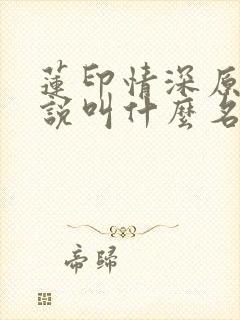 蓮印情深原
說叫什麼名
帝歸